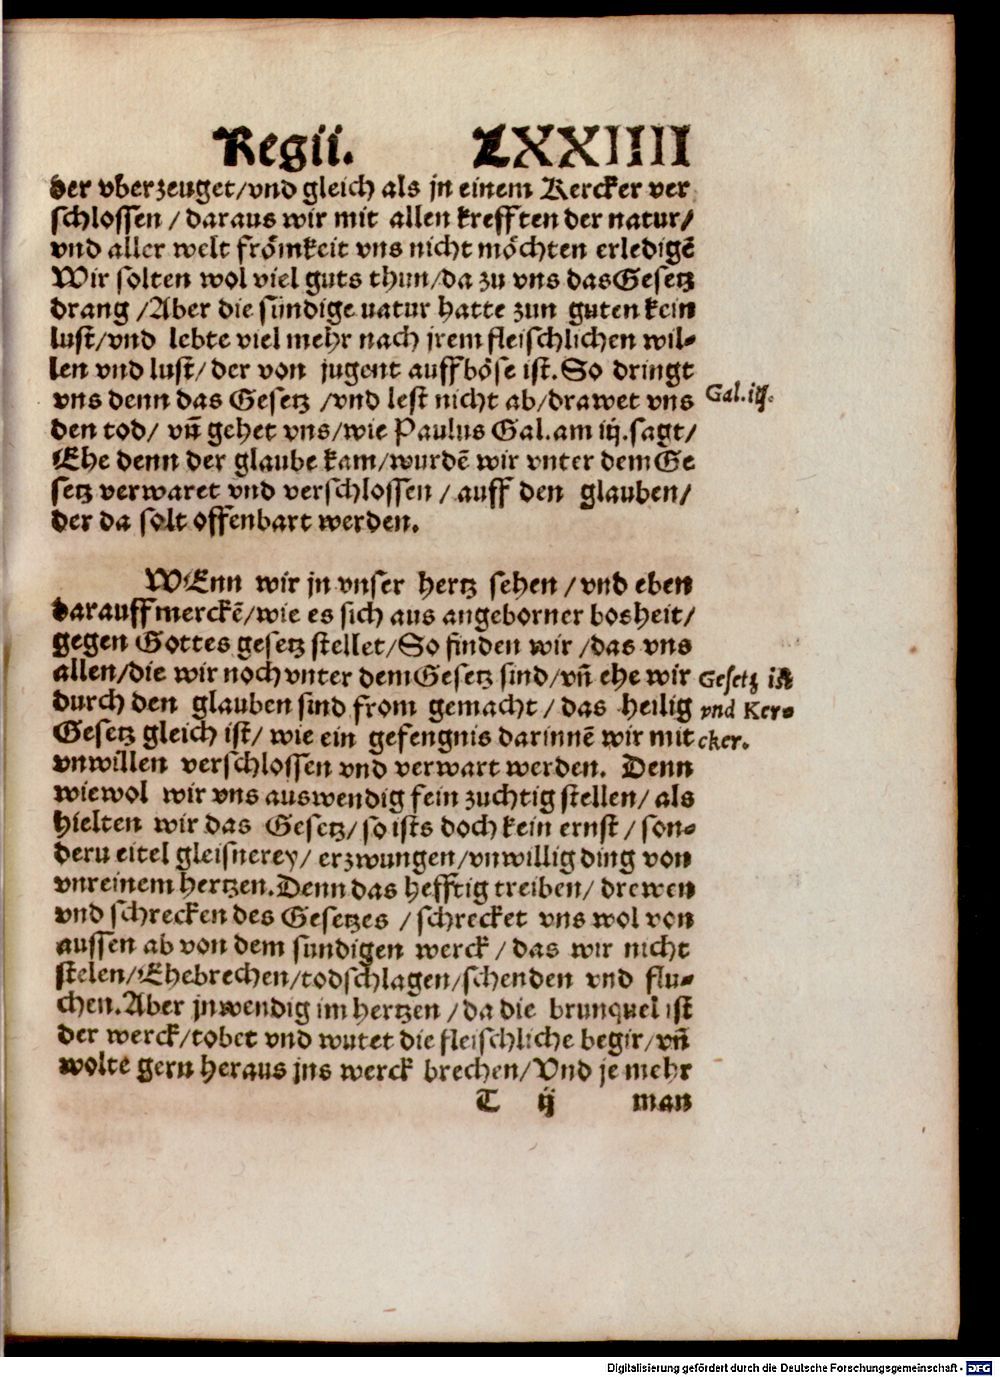 Regii. LXXIIII
der vberzeuget/vnd gleich als jn einem Kercker ver
schlossen / daraus wir mit allen krefften der natur/
vnd aller welt frömkeit vns nicht möchten erledigē
Wir solten wol viel guts thun/da zu vns das Gesetz
drang /Aber die sündige natur hatte zun guten kein
lust/vnd lebte viel mehr nach jrem fleischlichen wil-
len vnd lust/ der von jugent auff böse ist. So dringt
vns denn das Gesetz /vnd lest nicht ab/drawet vns
Gal.iij.
den tod/ vñ gehet vns/wie Paulus Gal.am iij.sagt/
Ehe denn der glaube kam/wurdē wir vnter dem Ge
setz verwaret vnd verschlossen / auff den glauben/
der da solt offenbart werden.
WEnn wir jn vnser hertz sehen /vnd eben
darauff merckē/wie es sich aus angeborner bosheit/
gegen Gottes gesetz stellet/So finden wir /das vns
allen/die wir noch vnter dem Gesetz sind/vñ ehe wir
durch den glauben sind from gemacht / das heilig
Gesetz gleich ist/ wie ein gefengnis darinnē wir mit
Gesetz ist
vnd Ker-
cker.
vnwillen verschlossen vnd verwart werden. Denn
wiewol wir vns auswendig fein zuchtig stellen/ als
hielten wir das Gesetz/ so ists doch kein ernst / son-
deru eitel gleisnerey/ erzwungen/vnwillig ding von
vnreinem hertzen.Denn das hefftig treiben/ drewen
vnd schrecken des Gesetzes / schrecket vns wol von
aussen ab von dem sundigen werck / das wir nicht
stelen/Ehebrechen/todschlagen/schenden vnd flu-
chen.Aber jnwendig im hertzen / da die brunquel ist
der werck/tobet vnd wutet die fleischliche begir/vñ
wolte gern heraus jns werck brechen/Vnd je mehr
T ij man
Digitalisierung gefördert durch die Deutsche Forschungsgemeinschaft - DFG